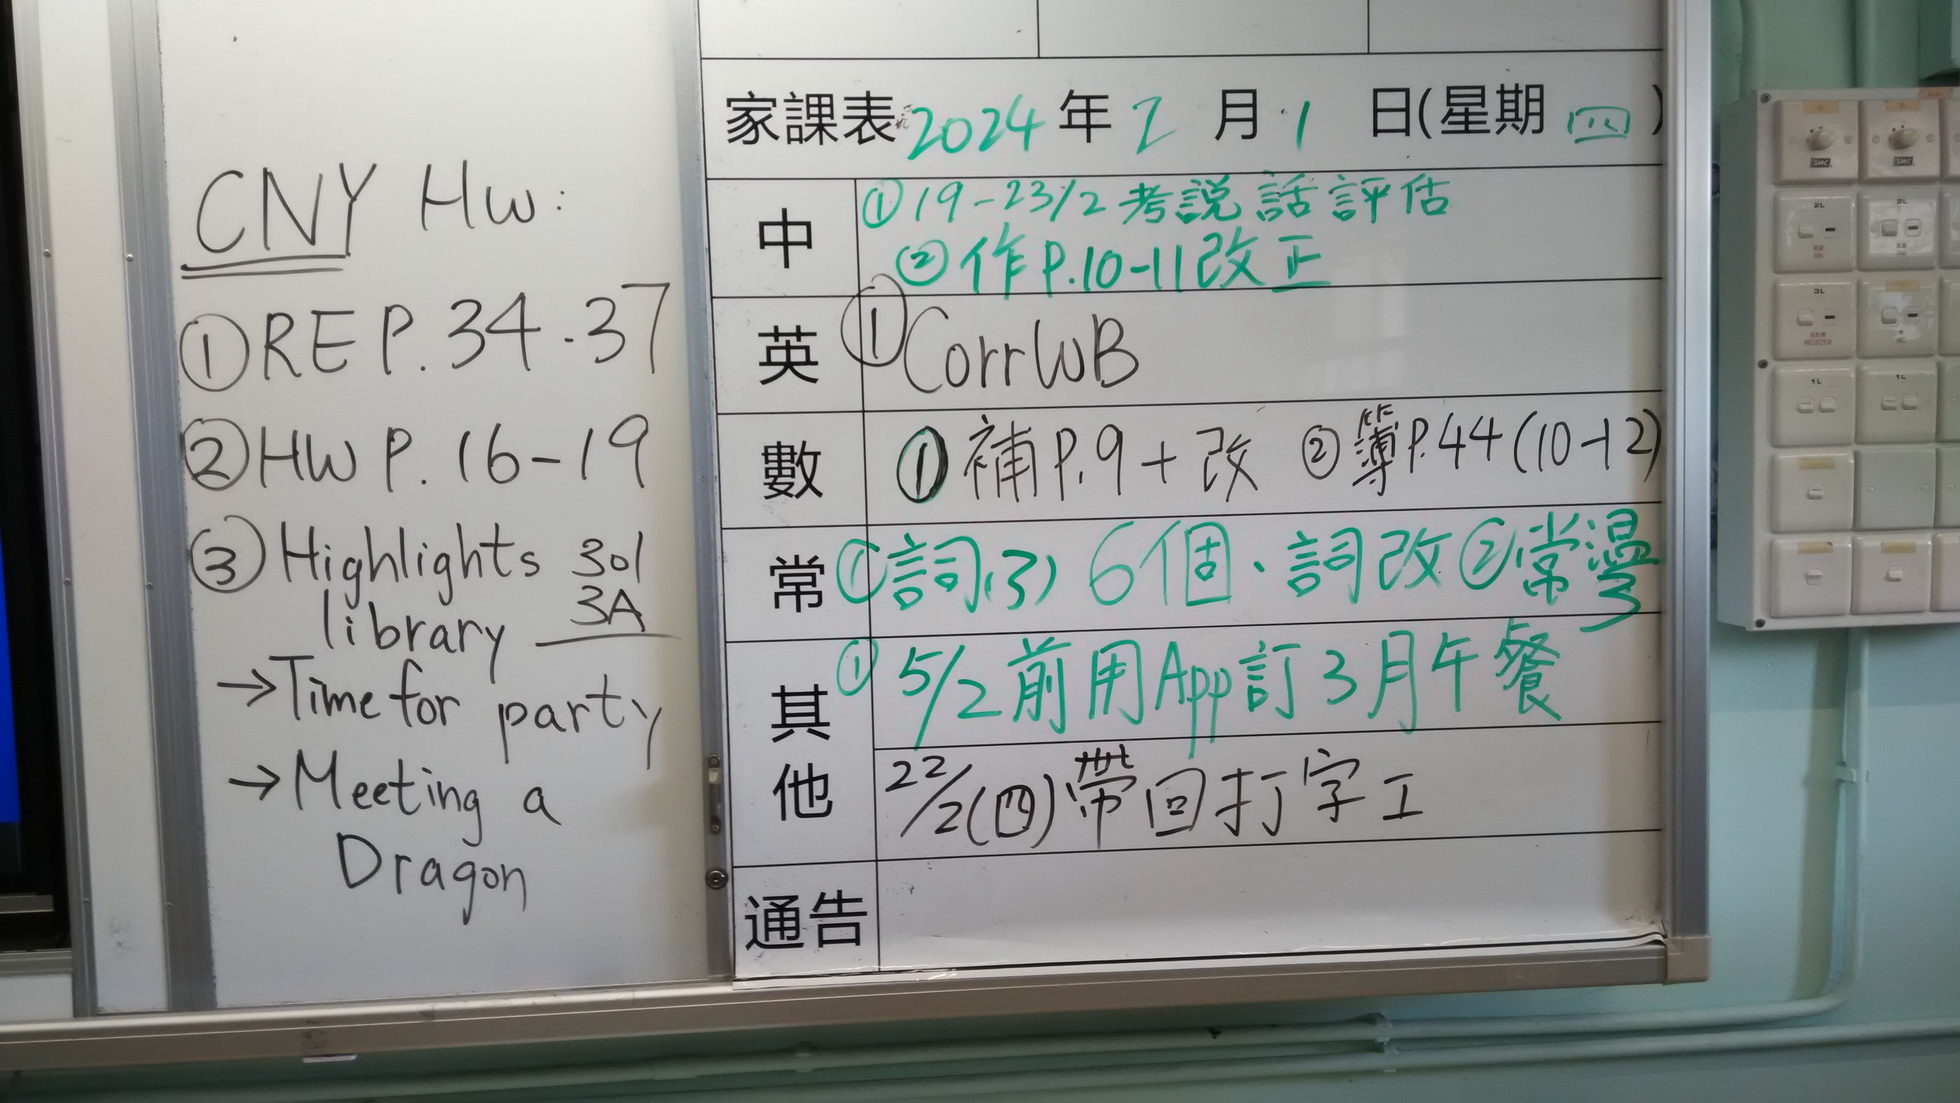 CNY Hw:
① RE P. 34-37
② HW P. 16-19
③ Highlights 301
library 3A
→ Time for party
→ Meeting a
Dragon
家課表 2024 年 2 月 1 日(星期 四)
中
① 19-23/2 考説話評估
② 作P.10-11改正
英
① CorrWB
數
① 補P.9+改 ② 簿P.44(10-12)
常
① 詞(3) 6個、詞改 ② 常
其他
① 5/2前用App訂3月午餐
22/2(四)帶回打字工
通告